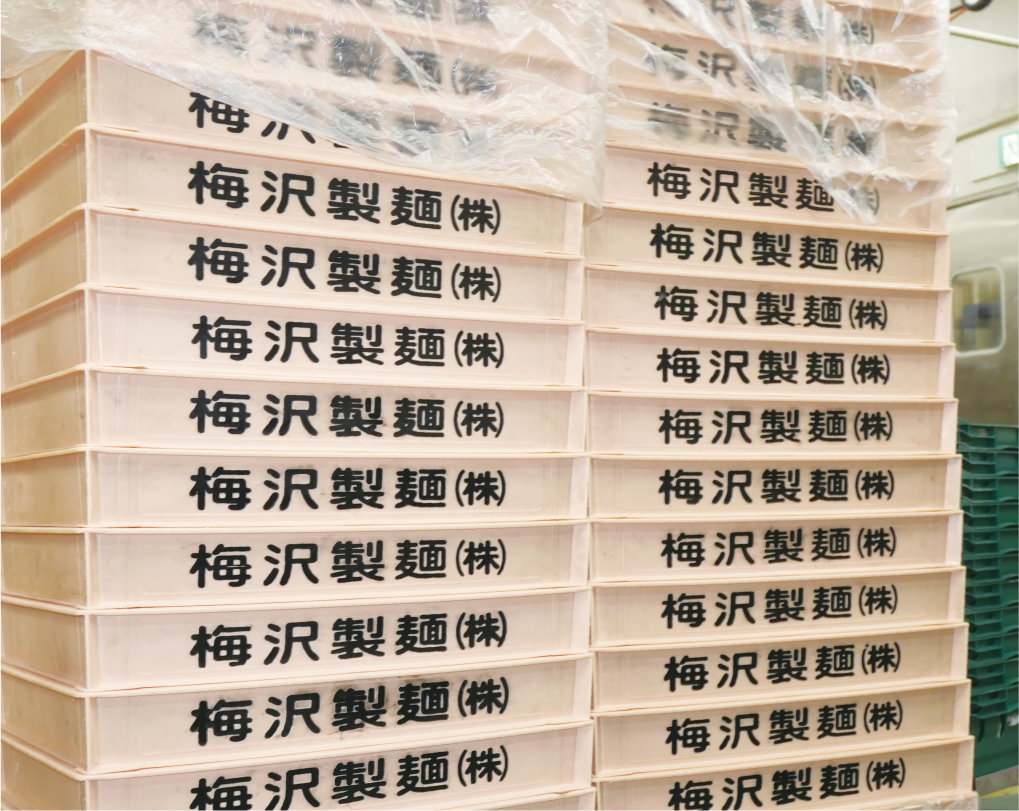 梅沢製麺
梅沢
梅沢製麺(株)
梅沢製麺(株)
梅沢製麺(株)
梅沢製麺(株)
梅沢製麺(株)
梅沢製麺(株)
梅沢製麺(株)
梅沢製麺(株)
梅沢製麺(株)
梅沢
梅沢製
梅沢製麺
梅沢製麺(株)
梅沢製麺(株)
梅沢製麺(株)
梅沢製麺(株)
梅沢製麺(株)
梅沢製麺(株)
梅沢製麺(株)
梅沢製麺(株)
梅沢製麺(株)
梅沢製麺(株)